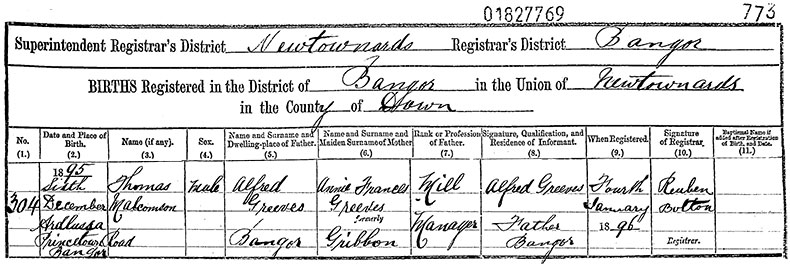 01827769 773
Superintendent Registrar's District Newtownards Registrar's District Bangor
BIRTHS Registered in the District of Bangor in the Union of Newtownards
in the County of Down
No. (1.)
Date and Place of Birth. (2.)
Name (if any). (3.)
Sex. (4.)
Name and Surname and Dwelling-place of Father. (5.)
Name and Surname and Maiden Surname of Mother. (6.)
Rank or Profession of Father. (7.)
Signature, Qualification, and Residence of Informant. (8.)
When Registered. (9.)
Signature of Registrar. (10.)
Baptismal Name if added after Registration of Birth, and Date. (11.)
304
1895
Sixth
December
Ardlussa
Princetown Road
Bangor
Thomas
Malcomson
Male
Alfred
Greeves
Bangor
Annie Frances
Greeves
formerly
Gribbon
Mill
Manager
Alfred Greeves
Father
Bangor
Fourth
January
1896
Reuben
Button
Registrar.